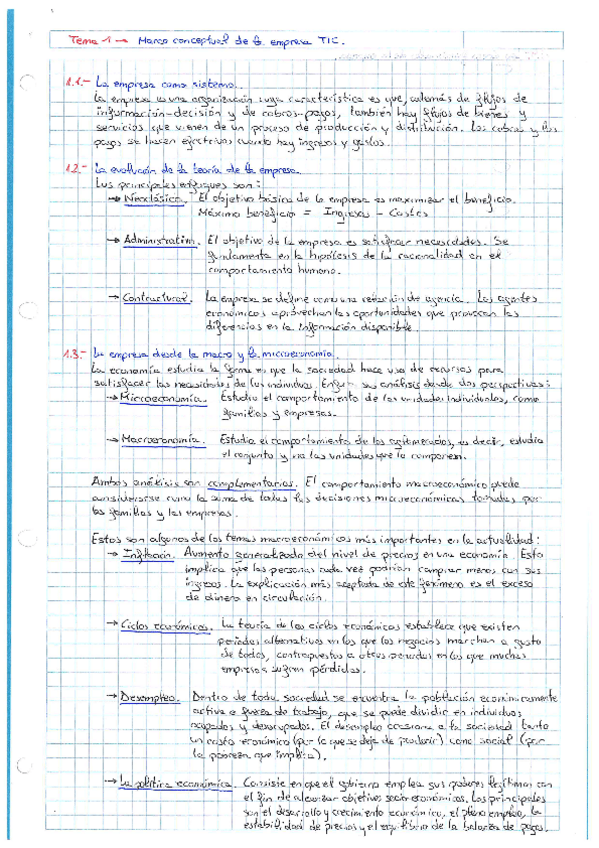 Tema 1 → Marco conceptual de la empresa TIC.
1.1.- La empresa como sistema.
La empresa es una organización cuya característica es que, además de flujos de
información-decisión y de cobros-pagos, también hay flujos de bienes y
servicios que vienen de un proceso de producción y distribución. Los cobros y los
pagos se hacen efectivos cuando hay ingresos y gastos.
1.2.- La evolución de la teoría de la empresa.
Los principales enfoques son:
→ Neoclásica. El objetivo básico de la empresa es maximizar el beneficio.
Máximo beneficio = Ingresos - Costes
→ Administrativa. El objetivo de la empresa es satisfacer necesidades. Se
fundamenta en la hipótesis de la racionalidad en el
comportamiento humano.
→ Contractual. La empresa se define como una relación de agencia. Los agentes
económicos aprovechan las oportunidades que provocan las
diferencias en la información disponible.
1.3.- La empresa desde la macro y la microeconomía.
La economía estudia la forma en que la sociedad hace uso de recursos para
satisfacer las necesidades de los individuos. su análisis desde dos perspectivas:
→ Microeconomía. Estudia el comportamiento de las unidades individuales, como
familias y empresas.
→ Macroeconomía. Estudia el comportamiento de los es decir, estudia
el conjunto y no las unidades que lo componen.
Ambos análisis son complementarios. El comportamiento macroeconómico puede
considerarse como la suma de todas las decisiones microeconómicas tomadas por
las familias y las empresas.
Estos son algunos de los temas macroeconómicos más importantes en la actualidad:
→ Inflación. Aumento generalizado del nivel de precios en una economía. Esto
implica que las personas cada vez podrían comprar menos con sus
ingresos. La explicación más aceptada de este fenómeno es el exceso
de dinero en circulación.
→ Ciclos económicos. La teoría de los ciclos económicos establece que existen
periodos alternativos en los que los negocios marchan a gusto
de todos, contrapuestos a otros periodos en los que muchas
empresas sufren pérdidas.
→ Desempleo. Dentro de toda sociedad se encuentra la población económicamente
activa o fuerza de trabajo, que se puede dividir en individuos
ocupados y desocupados. El desempleo ocasiona a la sociedad tanto
un costo económico (por lo que se deja de producir) como social (por
la pobreza que implica).
→ La política económica. Consiste en que el gobierno emplea sus poderes legítimos con
el fin de alcanzar objetivos socioeconómicos. Los principales
son el desarrollo y crecimiento económico, el pleno empleo, la
estabilidad de precios y el equilibrio de la balanza de pagos.